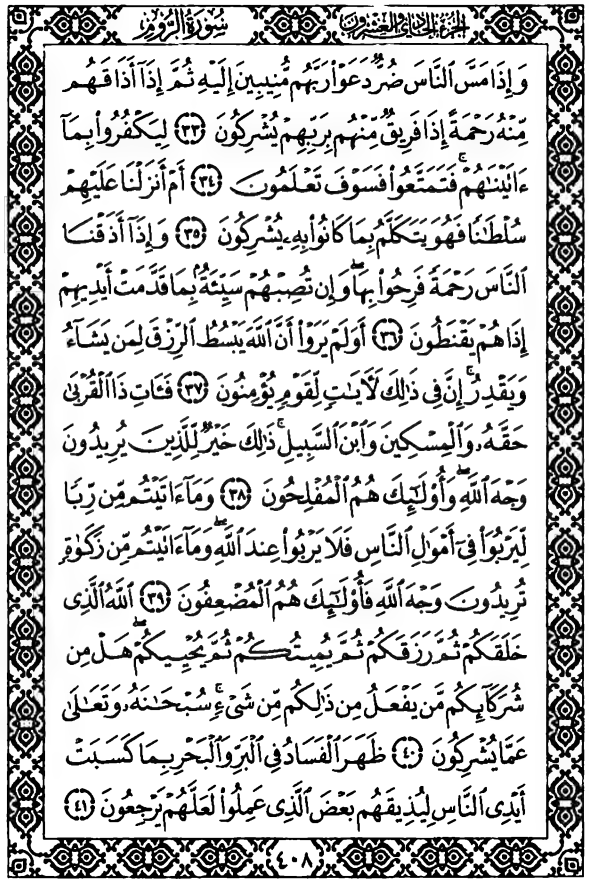 سُورَةُ الرُّومِ الجُزْءُ الحَادِي وَالعِشْرُونَ
وَإِذَا مَسَّ ٱلنَّاسَ ضُرٌّ دَعَوْا۟ رَبَّهُم مُّنِيبِينَ إِلَيْهِ ثُمَّ إِذَآ أَذَاقَهُم
مِّنْهُ رَحْمَةً إِذَا فَرِيقٌ مِّنْهُم بِرَبِّهِمْ يُشْرِكُونَ ٣٣ لِيَكْفُرُوا۟ بِمَآ
ءَاتَيْنَٰهُمْ ۚ فَتَمَتَّعُوا۟ فَسَوْفَ تَعْلَمُونَ ٣٤ أَمْ أَنزَلْنَا عَلَيْهِمْ
سُلْطَٰنًا فَهُوَ يَتَكَلَّمُ بِمَا كَانُوا۟ بِهِۦ يُشْرِكُونَ ٣٥ وَإِذَآ أَذَقْنَا
ٱلنَّاسَ رَحْمَةً فَرِحُوا۟ بِهَا ۖ وَإِن تُصِبْهُمْ سَيِّئَةٌۢ بِمَا قَدَّمَتْ أَيْدِيهِمْ
إِذَا هُمْ يَقْنَطُونَ ٣٦ أَوَلَمْ يَرَوْا۟ أَنَّ ٱللَّهَ يَبْسُطُ ٱلرِّزْقَ لِمَن يَشَآءُ
وَيَقْدِرُ ۚ إِنَّ فِى ذَٰلِكَ لَءَايَٰتٍ لِّقَوْمٍ يُؤْمِنُونَ ٣٧ فَـَٔاتِ ذَا ٱلْقُرْبَىٰ
حَقَّهُۥ وَٱلْمِسْكِينَ وَٱبْنَ ٱلسَّبِيلِ ۚ ذَٰلِكَ خَيْرٌ لِّلَّذِينَ يُرِيدُونَ
وَجْهَ ٱللَّهِ ۖ وَأُو۟لَٰٓئِكَ هُمُ ٱلْمُفْلِحُونَ ٣٨ وَمَآ ءَاتَيْتُم مِّن رِّبًا
لِّيَرْبُوَا۟ فِىٓ أَمْوَٰلِ ٱلنَّاسِ فَلَا يَرْبُوا۟ عِندَ ٱللَّهِ ۖ وَمَآ ءَاتَيْتُم مِّن زَكَوٰةٍ
تُرِيدُونَ وَجْهَ ٱللَّهِ فَأُو۟لَٰٓئِكَ هُمُ ٱلْمُضْعِفُونَ ٣٩ ٱللَّهُ ٱلَّذِى
خَلَقَكُمْ ثُمَّ رَزَقَكُمْ ثُمَّ يُمِيتُكُمْ ثُمَّ يُحْيِيكُمْ ۖ هَلْ مِن
شُرَكَآئِكُم مَّن يَفْعَلُ مِن ذَٰلِكُم مِّن شَىْءٍ ۚ سُبْحَٰنَهُۥ وَتَعَٰلَىٰ
عَمَّا يُشْرِكُونَ ٤٠ ظَهَرَ ٱلْفَسَادُ فِى ٱلْبَرِّ وَٱلْبَحْرِ بِمَا كَسَبَتْ
أَيْدِى ٱلنَّاسِ لِيُذِيقَهُم بَعْضَ ٱلَّذِى عَمِلُوا۟ لَعَلَّهُمْ يَرْجِعُونَ ٤١
٤٠٨